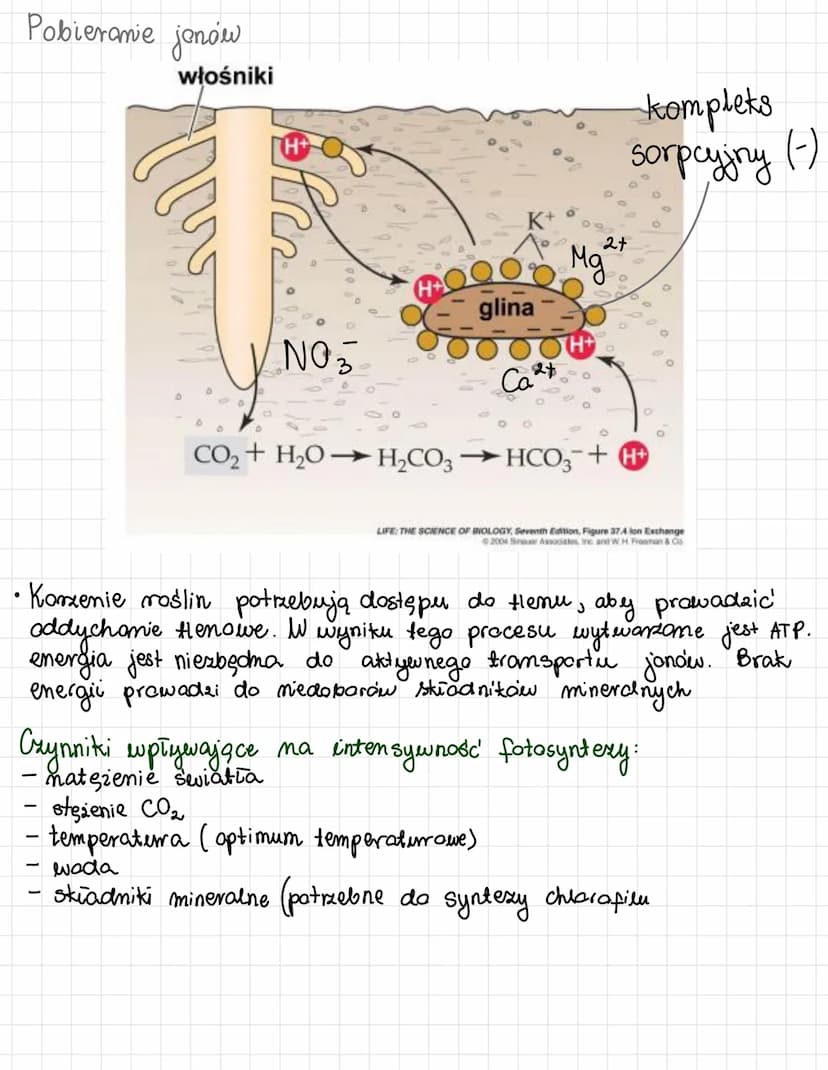 Pobieranie jonów
włośniki
kompleks
sorpcyjny (-)
H+
K+
Mg2+
H+
glina
H+
NO3-
Ca2+
CO2 + H2O → H2CO3 → HCO3- + H+
LIFE: THE SCIENCE OF BIOLOGY, Seventh Edition, Figure 37.4 Ion Exchange
© 2004 Sinauer Associates, Inc. and W. H. Freeman & Co.
• Korzenie roślin potrzebują dostępu do tlenu, aby prowadzić
oddychanie tlenowe. W wyniku tego procesu wytwarzane jest ATP.
energia jest niezbędna do aktywnego transportu jonów. Brak
energii prowadzi do niedoborów składników mineralnych
Czynniki wpływające na intensywność fotosyntezy:
- natężenie światła
- stężenie CO2
- temperatura (optimum temperaturowe)
- woda
- składniki mineralne (potrzebne do syntezy chlorofilu